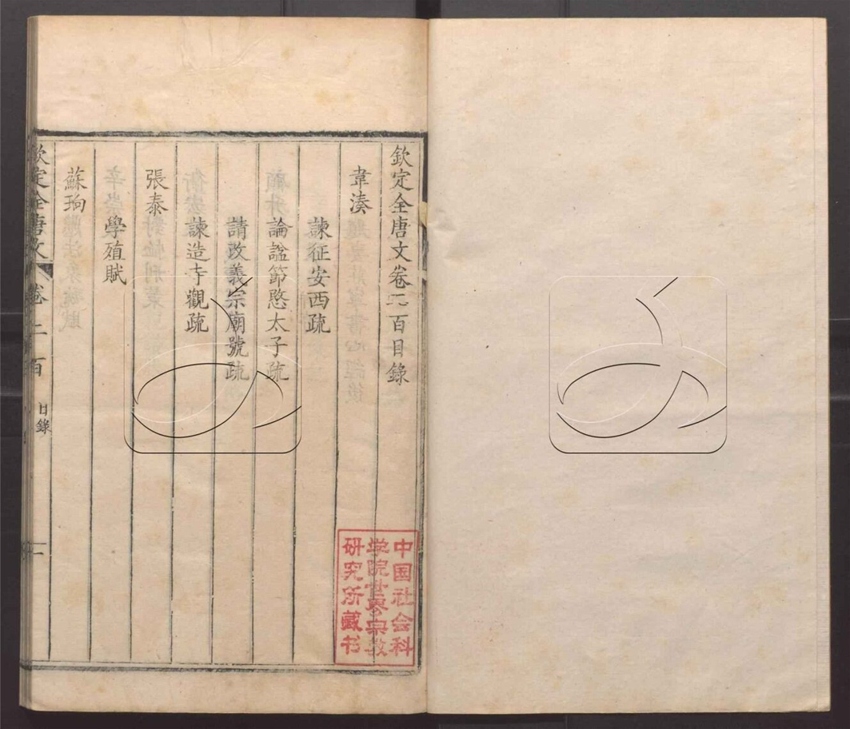 欽定全唐文卷二百目錄
韋湊
諫征安西疏
論諡節愍太子疏
請改義宗廟號疏
諫造寺觀疏
張泰
學殖賦
蘇珦
欽定全唐文 卷二百 目錄 一
中国社会科
学院世界宗教
研究所藏书